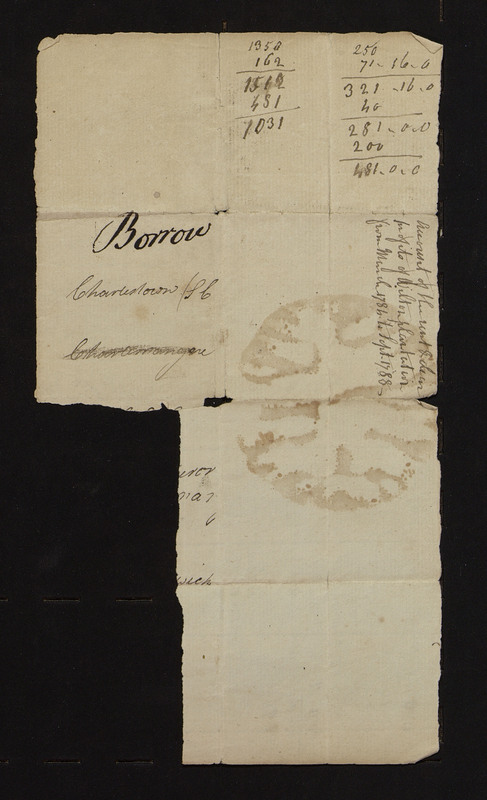 1350
162
1512
481
1031
250
71 - 16 - 0
321 - 16 - 0
40
281 - 0 - 0
200
481 - 0 - 0
Borrow
Charlestown / S C
Account of the rent &
profits of Wilton plantation
from March 1784 to Sept. 1788
wick